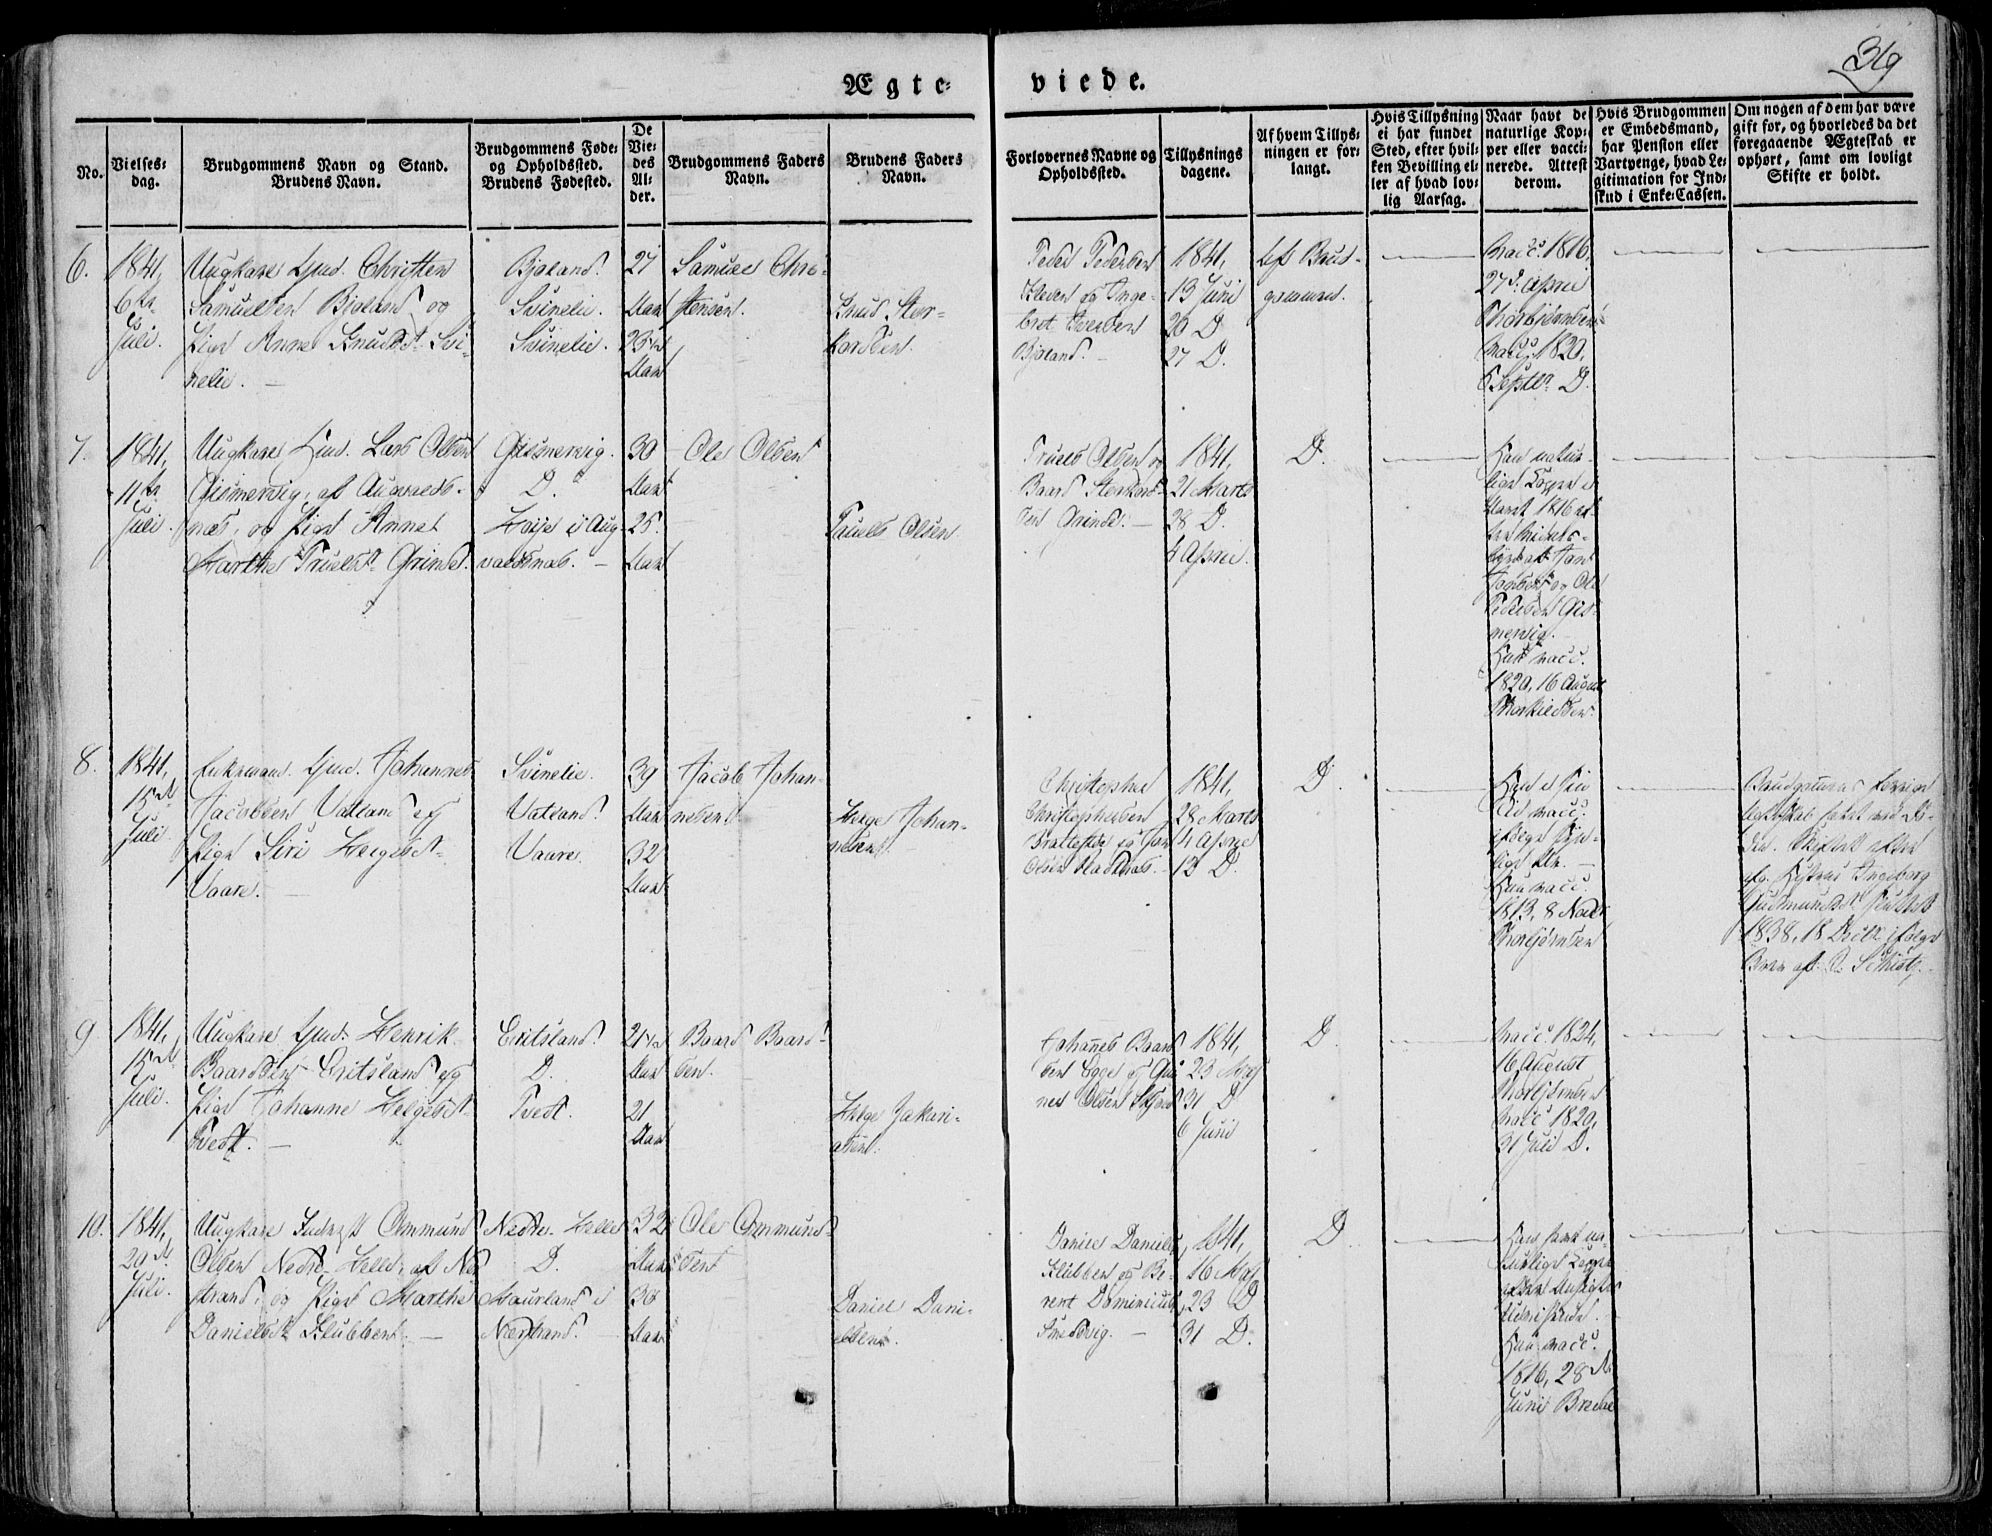 319
Ægte-
viede.
No.
Vielses-
dag.
Brudgommens Navn og Stand.
Brudens Navn.
Brudgommens Føde-
og Opholdssted.
Brudens Fødested.
De
Vie-
des
Al-
der.
Brudgommens Faders
Navn.
Brudens Faders
Navn.
Forlovernes Navne og
Opholdssted.
Tillysnings
dagene.
Af hvem Tillys-
ningen er for-
langt.
Hvis Tillysning
ei har fundet
Sted, efter hvil-
ken Bevilling el-
ler af hvad lov-
lig Aarsag.
Naar havt de
naturlige Kop-
per eller vacci-
nerede. Attest
derom.
Hvis Brudgommen
er Embedsmand,
har Pension eller
Vartpenge, hvad Le-
gitimation for Ind-
skud i Enke-Cassen.
Om nogen af dem har være
gift før, og hvorledes da det
foregaaende Ægteskab er
ophørt, samt om lovligt
Skifte er holdt.
6.
1841,
6te
Juli.
Ungkarl Gmd. Christen
Samuelsen Bjøland og
Pige Anne Knudsdt Svi-
nelie. —
Bjøland.
Svinelie.
Svinelie.
27
Aar
23
Aar
Samuel Chri-
stensen.
Knud Stor-
karsen.
Peder Pedersen
og Inge-
bret Iversen
Bjøland. —
1841,
13 Juni
20 D.
27 D.
Brud-
gommen.
Vacc. 1816,
27de April
Thorbjørnsen
Vacc. 1820,
6 Septbr D.
7.
1841,
11te
Juli.
Ungkarl Gmd. Lars Olsen
Gismervig, af Augvalds-
næs, og Pige Anne
Marthe Truelsdt Grinde.
Gismervig.
D.
i Aug-
valdsnæs. —
30
Aar
25
Aar
Ole Olsen
Truels Olsen
Truels Olsen og
Baard Storkors-
sen Grinde. —
1841,
21 Marts
28 D.
4 April.
D.
Han natur-
lige Kopper i
Aaret 1816
af Hans
og Ole
Pedersen Gis-
mervig. —
Hun vacc.
1820, 16 August
Thorkildsen.
8.
1841,
15de
Juli.
Enkemand Gmd. Johannes
Jacobsen Vatland og
Pige Siri Helgesdt
Vaare. —
Svinelie.
Vatland.
Vaare.
39
Aar
32
Aar
Jacob Johan-
nesen.
Helge Johan-
nesen.
Christopher
Christophersen
og Jon
Olsen
1841,
28 Marts
4 April
12 D.
D.
Han
vacc.
ifølge
Hun vacc.
1813, 8 Novbr
Thorbjørnsen
Brudgommens forrige
Ægteskab
den. Skiftet efter
Ingeborg
Gudmundsdt sluttet
1838, 18 Decbr ifølge
Brev af
9
1841,
15de
Juli.
Ungkarl Gmd. Henrik
Baardsen Eritsland og
Pige Johanne Helgesdt
Tvedt. —
Eritsland.
D.
Tvedt.
21
Aar
21
Aar
Baard Baard-
sen.
Helge Zakari-
asen.
Johannes Baard-
sen Egge og Gun-
nes Olsen
1841,
23 Maj
31 D
6 Juni
D.
Vacc. 1824,
16 August
Thorbjørnsen
Vacc 1820,
31 Juli D.
10.
1841,
20de
Juli.
Ungkarl Ommund
Olsen Nedre-Helle, af Ne-
strand, og Pige Marthe
Danielsdt Klubben. —
Nedre-Helle
D.
Maurland i
Nestrand. —
32
Aar
30
Aar
Ole Ommund-
sen
Daniel Dani-
elsen.
Daniel Daniels.
Klubben og Be-
rent Dominicus
Smedvig. —
1841,
16 Maj
23 D
31 D.
D.
Han havt na-
turlige Kopper
Hun vacc.
1816, 28de
Juni